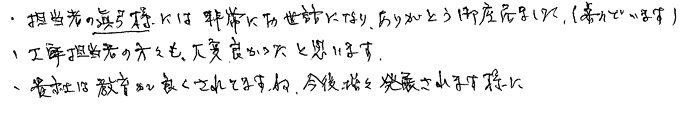 ・担当者の眞弓様には非常にお世話になり、ありがとう御座居ました、(素的でいます)
、工事担当者の方々も、大変良かったと思います.
、貴社は教育が良くされてますね、今後増々発展されます様に